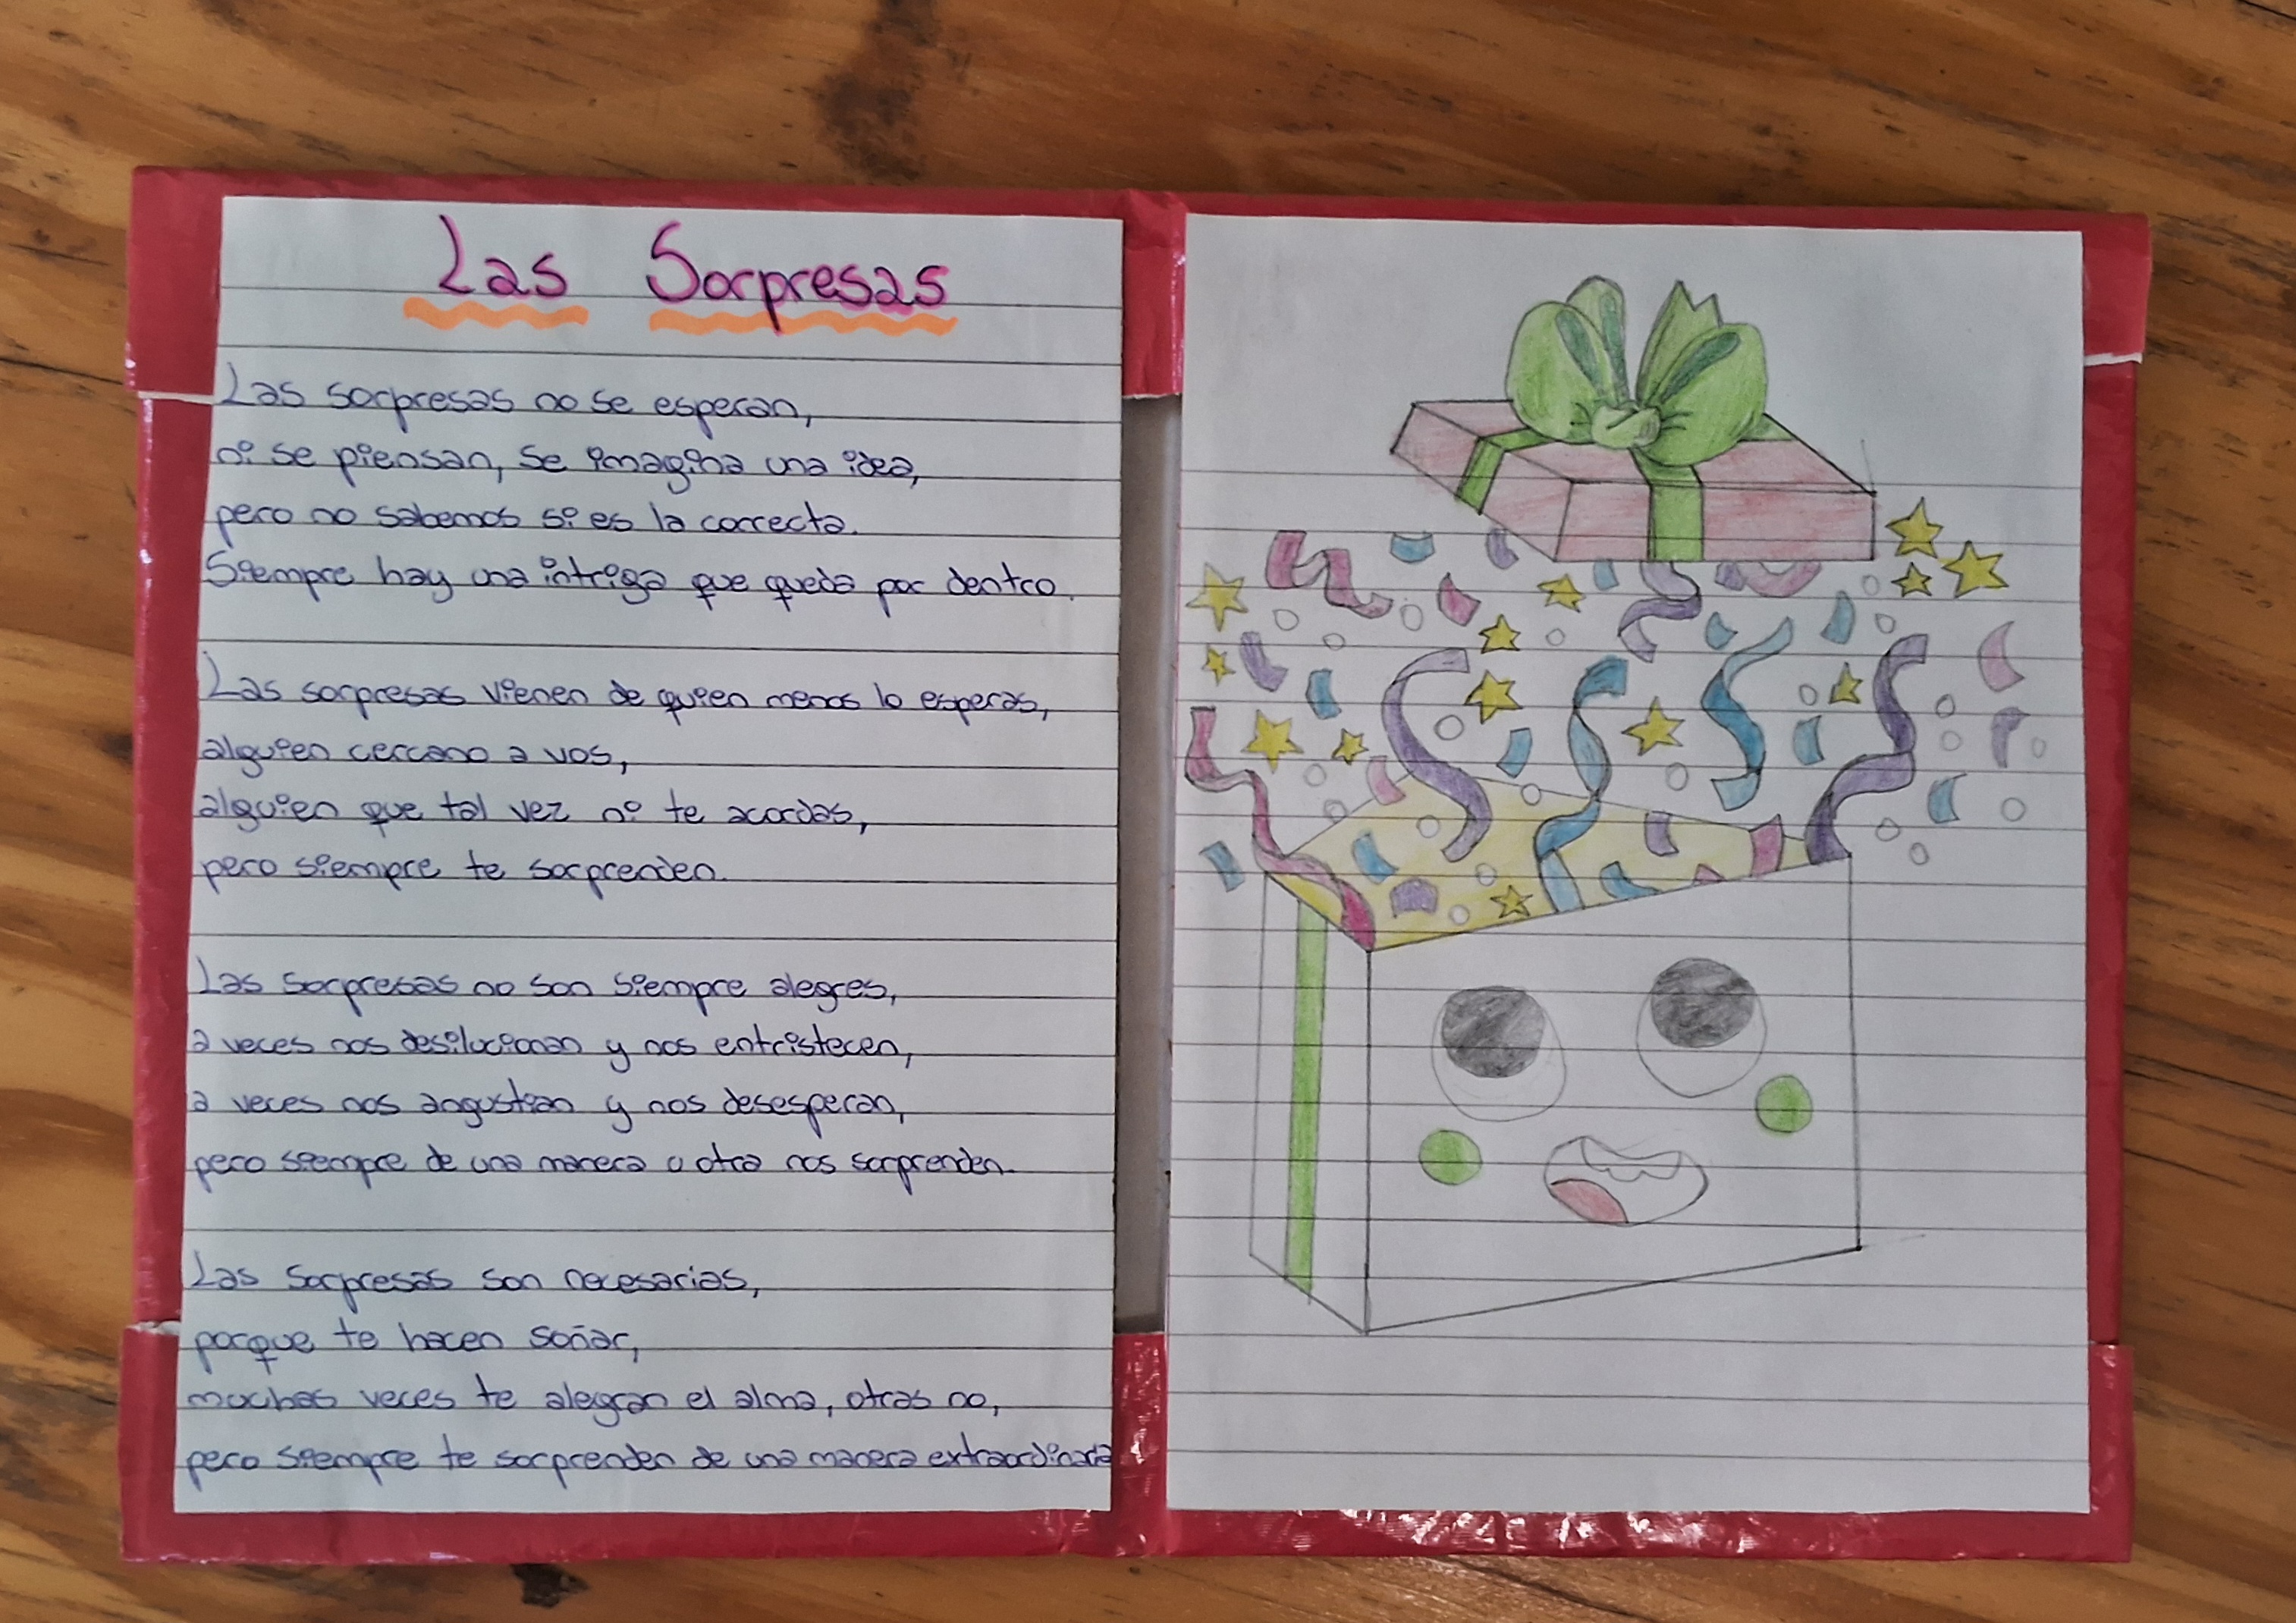 Las Sorpresas
Las sorpresas no se esperan,
ni se piensan, se imagina una idea,
pero no sabemos si es la correcta.
Siempre hay una intriga que queda por dentro.
Las sorpresas vienen de quien menos lo esperas,
alguien cercano a vos,
alguien que tal vez ni te acordas,
pero siempre te sorprenden.
Las sorpresas no son siempre alegres,
a veces nos desilucionan y nos entristecen,
a veces nos angustian y nos desesperan,
pero siempre de una manera u otra nos sorprenden.
Las sorpresas son necesarias,
porque te hacen soñar,
muchas veces te alegran el alma, otras no,
pero siempre te sorprenden de una manera extraordinaria